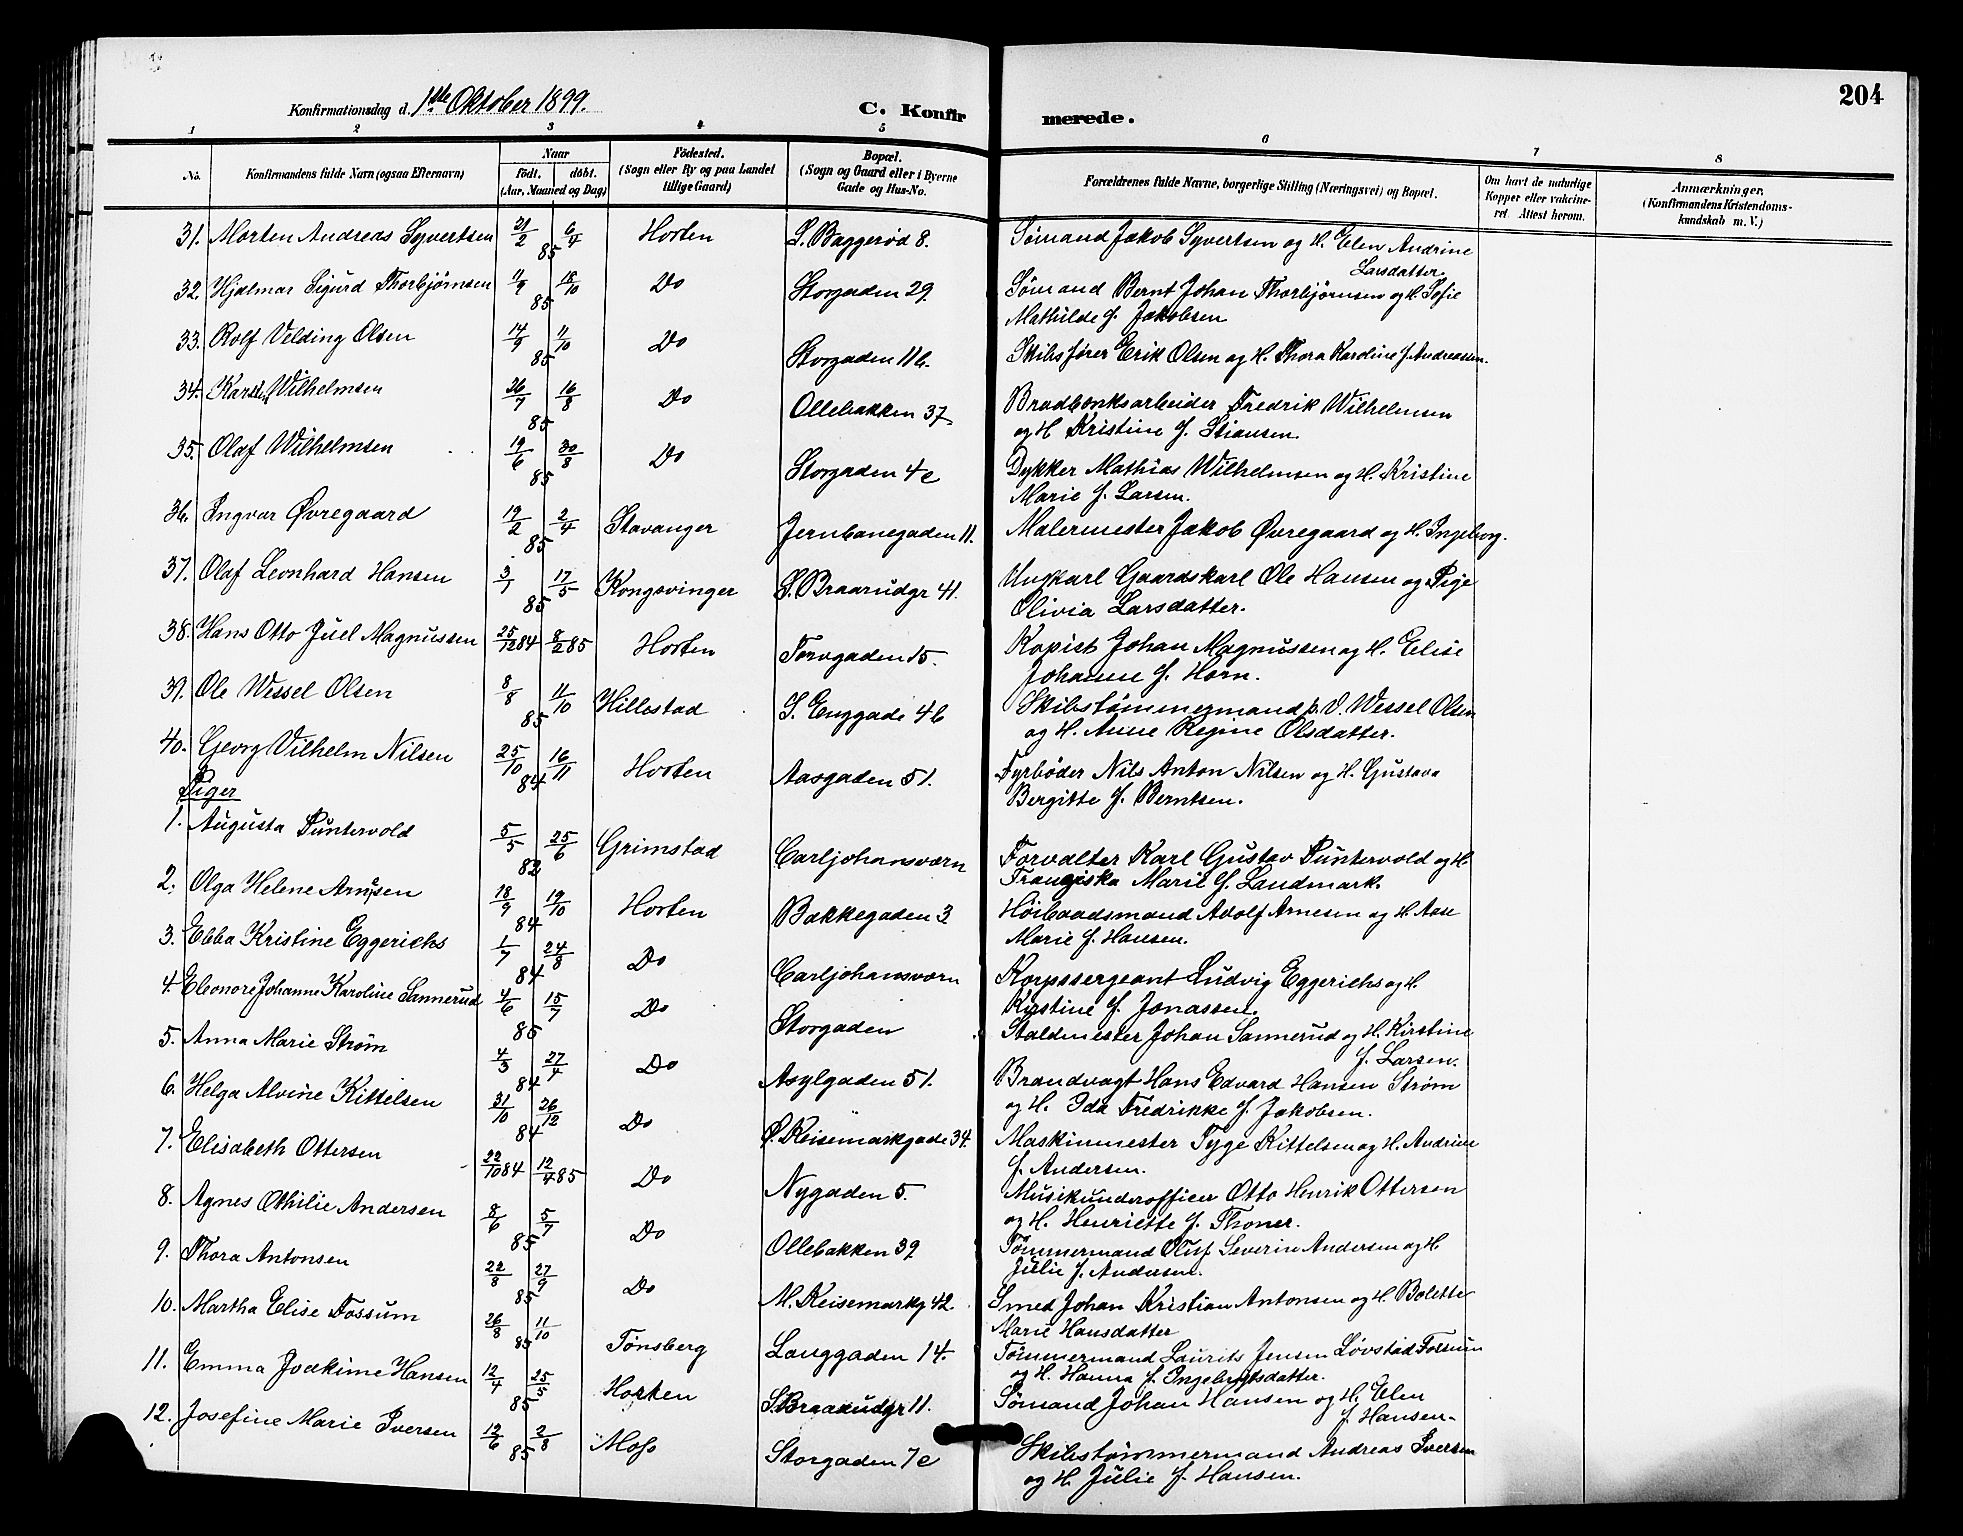 204
Konfirmationsdag d. 1ste Oktober 1899.
C. Konfirmerede.
1 2 3 4 5 6 7 8
No. Konfirmandens fulde Navn (ogsaa Efternavn) Naar födt. döbt. (Aar, Maaned og Dag) Födested. (Sogn eller By og paa Landet tillige Gaard) Bopæl. (Sogn og Gaard eller i Byerne Gade og Hus-No. Forældrenes fulde Navne, borgerlige Stilling (Næringsvei) og Bopæl. Om havt de naturlige Kopper eller vakcineret. Attest herom. Anmærkninger, (Konfirmandens Kristendomskundskab m. V.)
31. Morten Andreas Syvertsen 21/2 6/4 85 Horten S. Baggerød 8. Sømand Jakob Syvertsen og H. Elen Andrine
Larsdatter.
32. Hjalmar Sigurd Thorbjørnsen 11/9 18/10 85 Do Storgaden 29. Sømand Bernt Johan Thorbjørnsen og H. Sofie
Mathilde f. Jakobsen
33. Rolf Velding Olsen 14/9 11/10 85 Do Storgaden 11b. Skibsfører Erik Olsen og H. Thora Karoline f. Andreassen.
34. Karsten Wilhelmsen 26/7 16/8 85 Do Ollebakken 37 Bradbænksarbeider Fredrik Wilhelmsen
og H Kristine f. Stiansen.
35. Olaf Wilhelmsen 19/6 30/8 85 Do Storgaden 4c Dykker Mathias Wilhelmsen og H. Kristine
Marie f. Larsen.
36. Ingvar Øvregaard 19/2 2/4 85 Stavanger Jernbanegaden 11. Malermester Jakob Øvregaard og H. Ingeborg.
37. Olaf Leonhard Hansen 3/1 17/5 85 Kongsvinger S. Braarudgr 41. Ungkarl Gaardskarl Ole Hansen og Pige
Olivia Larsdatter.
38. Hans Otto Juel Magnussen 25/12 84 8/2 85 Horten Torvgaden 15. Kopist Johan Magnussen og H. Elise
Johanne f. Horn.
39. Ole Wessel Olsen 8/8 11/10 85 Hillestad S. Enggade 4b Skibstømmermand p. V. Wessel Olsen
og H. Anne Regine Olsdatter.
40. Georg Vilhelm Nilsen 25/10 16/11 84 Horten Aasgaden 51. Fyrbøder Nils Anton Nilsen og H. Gustava
Bergitte f. Berntsen.
Piger
1. Augusta Puntervold 5/5 25/6 82 Grimstad Carljohansværn Forvalter Karl Gustav Puntervold og H.
Franciska Marie f. Landmark.
2. Olga Helene Arnesen 18/9 19/10 84 Horten Bakkegaden 3 Høibaadsmand Adolf Arnesen og H. Aase
Marie f. Hansen.
3. Ebba Kristine Eggerichs 1/7 24/8 84 Do Carljohansværn Korpssergeant Ludvig Eggerichs og H.
Kirstine f. Jonassen.
4. Eleonore Johanne Karoline Sannerud 4/6 15/7 85 Do Storgaden Staldmester Johan Sannerud og H. Kirstine
f. Larsen.
5. Anna Marie Strøm 4/3 27/4 84 Do Asylgaden 51. Brandvagt Hans Edvard Hansen Strøm
og H. Ida Fredrikke f. Jakobsen.
6. Helga Alvine Kittelsen 31/10 26/12 84 Do Ø. Keisemarkgade 34. Maskinmester Tyge Kittelsen og H. Andrine
f. Andersen.
7. Elisabeth Ottersen 22/10 84 12/4 85 Do Nygaden 5. Musikunderofficer Otto Henrik Ottersen
og H. Henriette f. Thoner.
8. Agnes Othilie Andersen 8/6 5/7 85 Do Ollebakken 39 Tømmermand Oluf Severin Andersen og H.
Julie f. Andersen.
9. Thora Antonsen 22/8 27/9 85 Do M. Keisemarkg 42. Smed Johan Kristian Antonsen og H Bolette
Marie Hansdatter
10. Martha Elise Fossum 26/8 11/10 85 Tønsberg Langgaden 14. Tømmermand Laurits Jensen Løvstad Fossum
og H. Hanna f. Ingebrigtsdatter.
11. Emma Joakime Hansen 12/4 25/5 85 Horten S. Braarudgr 11. Sømand Johan Hansen og H. Elen
f. Hansen.
12. Josefine Marie Iversen 12/6 2/8 85 Moss Storgaden 7c Skibstømmermand Andreas Iversen
og H. Julie f. Hansen.